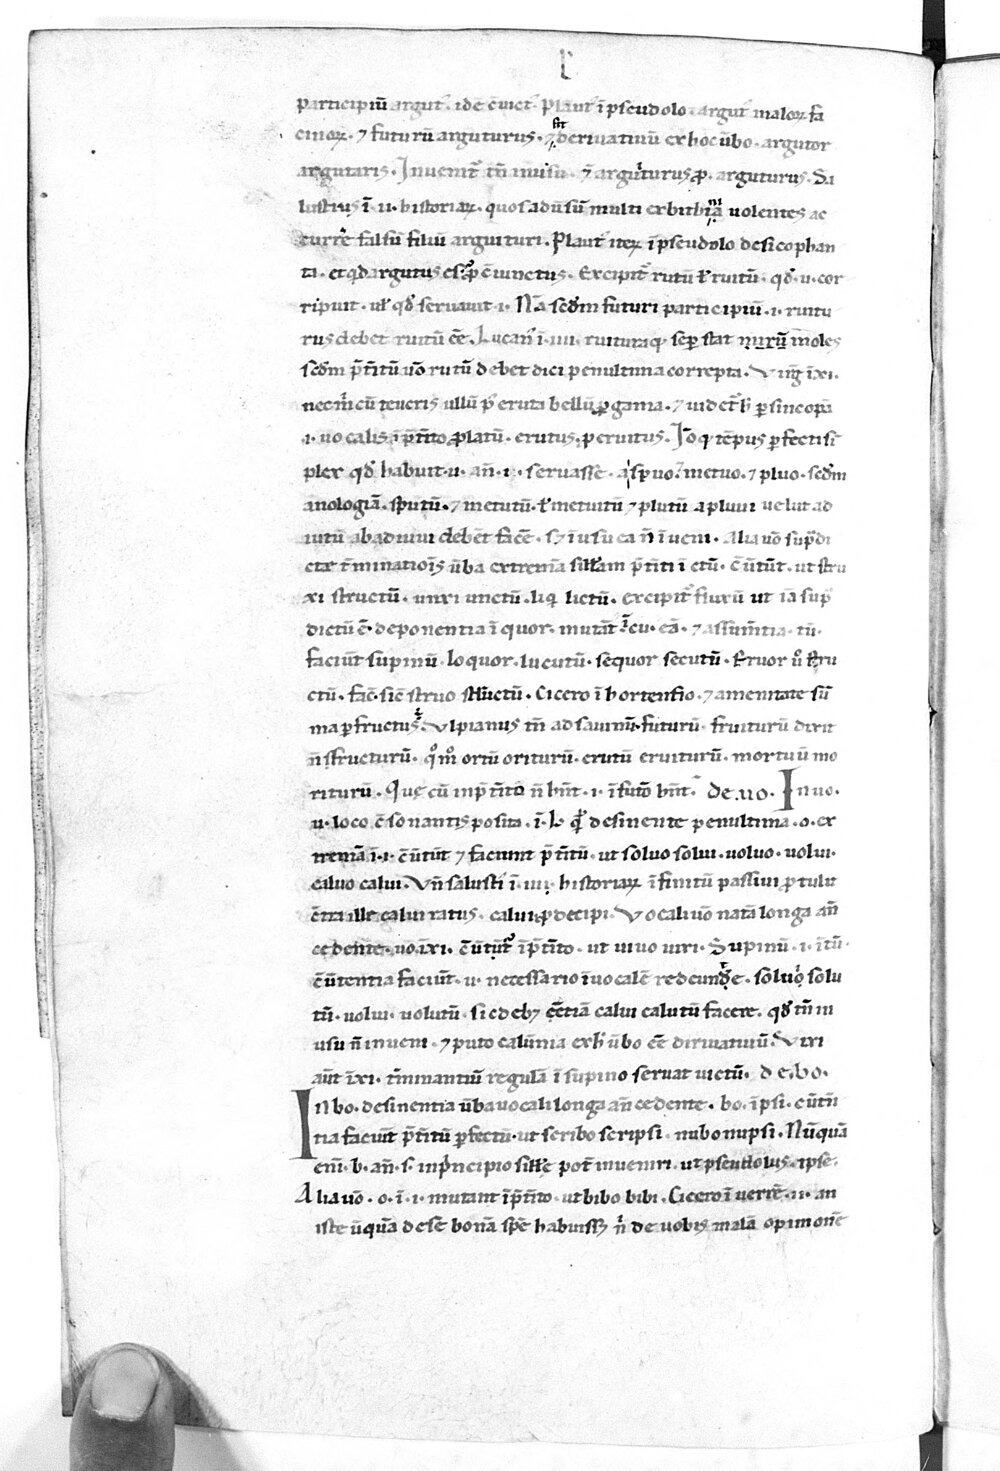 participiū argut᷒. idē ēuict᷒. Plaut᷒ ī pseudolo. argut᷒ maloꝝ fa
cinoꝝ. ⁊ futurū arguturus. ⁊ fit deriuatiuū ex hoc ūbo. argutor
argutaris. Inuenit᷑ tn̄ in usu. ⁊ arguiturus ꝓ. arguturus. Sa
lustius ī .ii. historiaꝝ. quos aduersū multi ex bithinia uolentes ac
currē falsū filiū arguituri. Plaut᷒ iteꝝ ī pseudolo de sicophan
ta. et qd argutus es. ꝓ cōiunctus. Excipit᷑ rutū ł ruitū. qd̄ .u. cor
ripuit. uł qd̄ seruauit .i. Nā scdm futuri participiū .i. ruitu
rus debet ruitū ēe. Lucan᷒ ī .iiii. ruituraq; sēp stat mirū moles
scdm p̄t̄itū ū̄o rutū debet dici penultima correpta. Virḡ ī .xi.
nec m̄ cū teucris ullū p᷒ eruta bellū pergama. ⁊ uidet᷑ h̄ p sincopā
.i. uocalis ī p̄t̄ito ꝓlatū. erutus, p eruitus. Iō q; tēpus pfectī sī
plex qd̄ habuit .u. an̄ .i. seruasse. a spuo. metuo. ⁊ pluo. scdm
anologiā. sputū. ⁊ metutū. ł metuitū ⁊ plutū a plui uelut ad
iutū ab adiuui debēt facē. sȝ ī usu ea n̄ īueni. Alia ū̄o sup̄di
ctæ t̄minatiōīs ūba extremā sillam p̄t̄iti ī ctū. cōūtūt. ut stru
xi structū. unxi unctū. liq̄ lictū. excipit᷑ fluxū ut iā sup̄
dictū ē. deponentia ī quor. mutāt ī cu. eā. ⁊ assum̄tia. tū.
faciūt supinū. loquor. lucutū. sequor secutū. Fruor ū fru
ctū. fac̄. sic̄ struo structū. Cicero ī hortensio. ⁊ amenitate sū
ma pfructus. Vlpianus tn̄ ad sauinū. futurū fruiturū dixit
n̄ fructurū. qm̄ ortū oriturū. erutū eruiturū. mortuū mo
riturū. Que cū in p̄t̄ito n̄ hn̄t .i. ī futō hn̄t. de .uo. In uo.
u. loco cōsonantis posita. ī. l. desinente penultima .o. ex
tremā ī .i. cōūtūt ⁊ faciunt p̄t̄itū. ut soluo solui. uoluo. uolui.
caluo calui. Vn̄ salusti᷒ ī .iii. historiaꝝ īfinitū passiui ꝓtulit
cōtra ille calui ratus. calui ꝓ decipi. Vocali ū̄o natā longa an̄
cedente. uo. ī xi. cōūtūt᷑ ī p̄t̄ito. ut uiuo uixi. Supinū .i. ī tū.
cōūtentia faciūt. u. necessario ī uocalē redeunde. soluo solu
tū. uolui. uolutū. sic debȝ ētiā calui calutū facere. qd̄ tn̄ in
usu n̄ inueni. ⁊ puto calūnia ex h̄ ūbo ēē diriuatiuū. Vixi
aūt ī xi. t̄minantiū regulā ī supino seruat uictū. de .bo.
In bo. desinentia ūba uocali longa an̄cedente. bo. ī psi. cōūtn̄
tia faciūt p̄t̄itū pfectū. ut scribo scripsi. nubo nupsi. Nūquā
eni᷒. b. an̄ .s. in prīncipio sille pot̄ inueniri. ut pseudolus. ipse.
Alia ū̄o .o. ī .i. mutant ī p̄t̄ito. ut bibo bibi. Cicero ī uerrē .ii. an
iste ūquā dese bonā spē habuisȝ n̄ de uobis malā opinionē